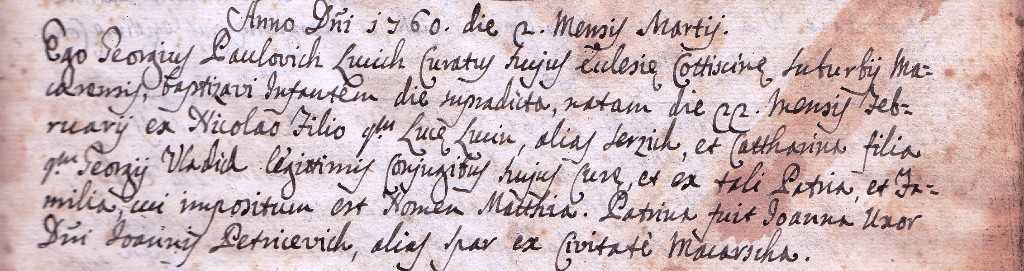 Anno Dñi 1760. die 2. Mensis Martij.
Ego Georgius Paulovich Lucich Curatus hujus Eclesię Cottiscinę suburbij Ma=
carensis, baptizavi Infantem die supradicta, natam die 22. Mensis Feb=
ruarij ex Nicolao Filio qm Lucę Lucin, alias Serzich, et Cattharina filia
qm Georgij Vladid legittimis Conjugibus hujus Curę, et ex tali Patria, et Fa=
milia, cui impositum est Nomen Matthia. Patrina fuit Joanna Uxor
Dñi Joannis Petricevich, alias Spar ex Civitate Macarscha.